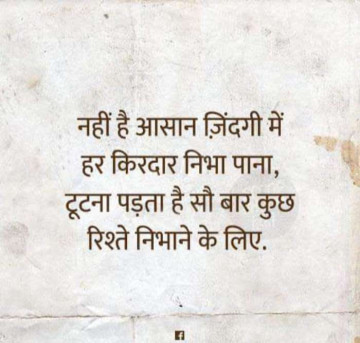 नहीं है आसान ज़िंदगी में
हर किरदार निभा पाना,
टूटना पड़ता है सौ बार कुछ
रिश्ते निभाने के लिए.